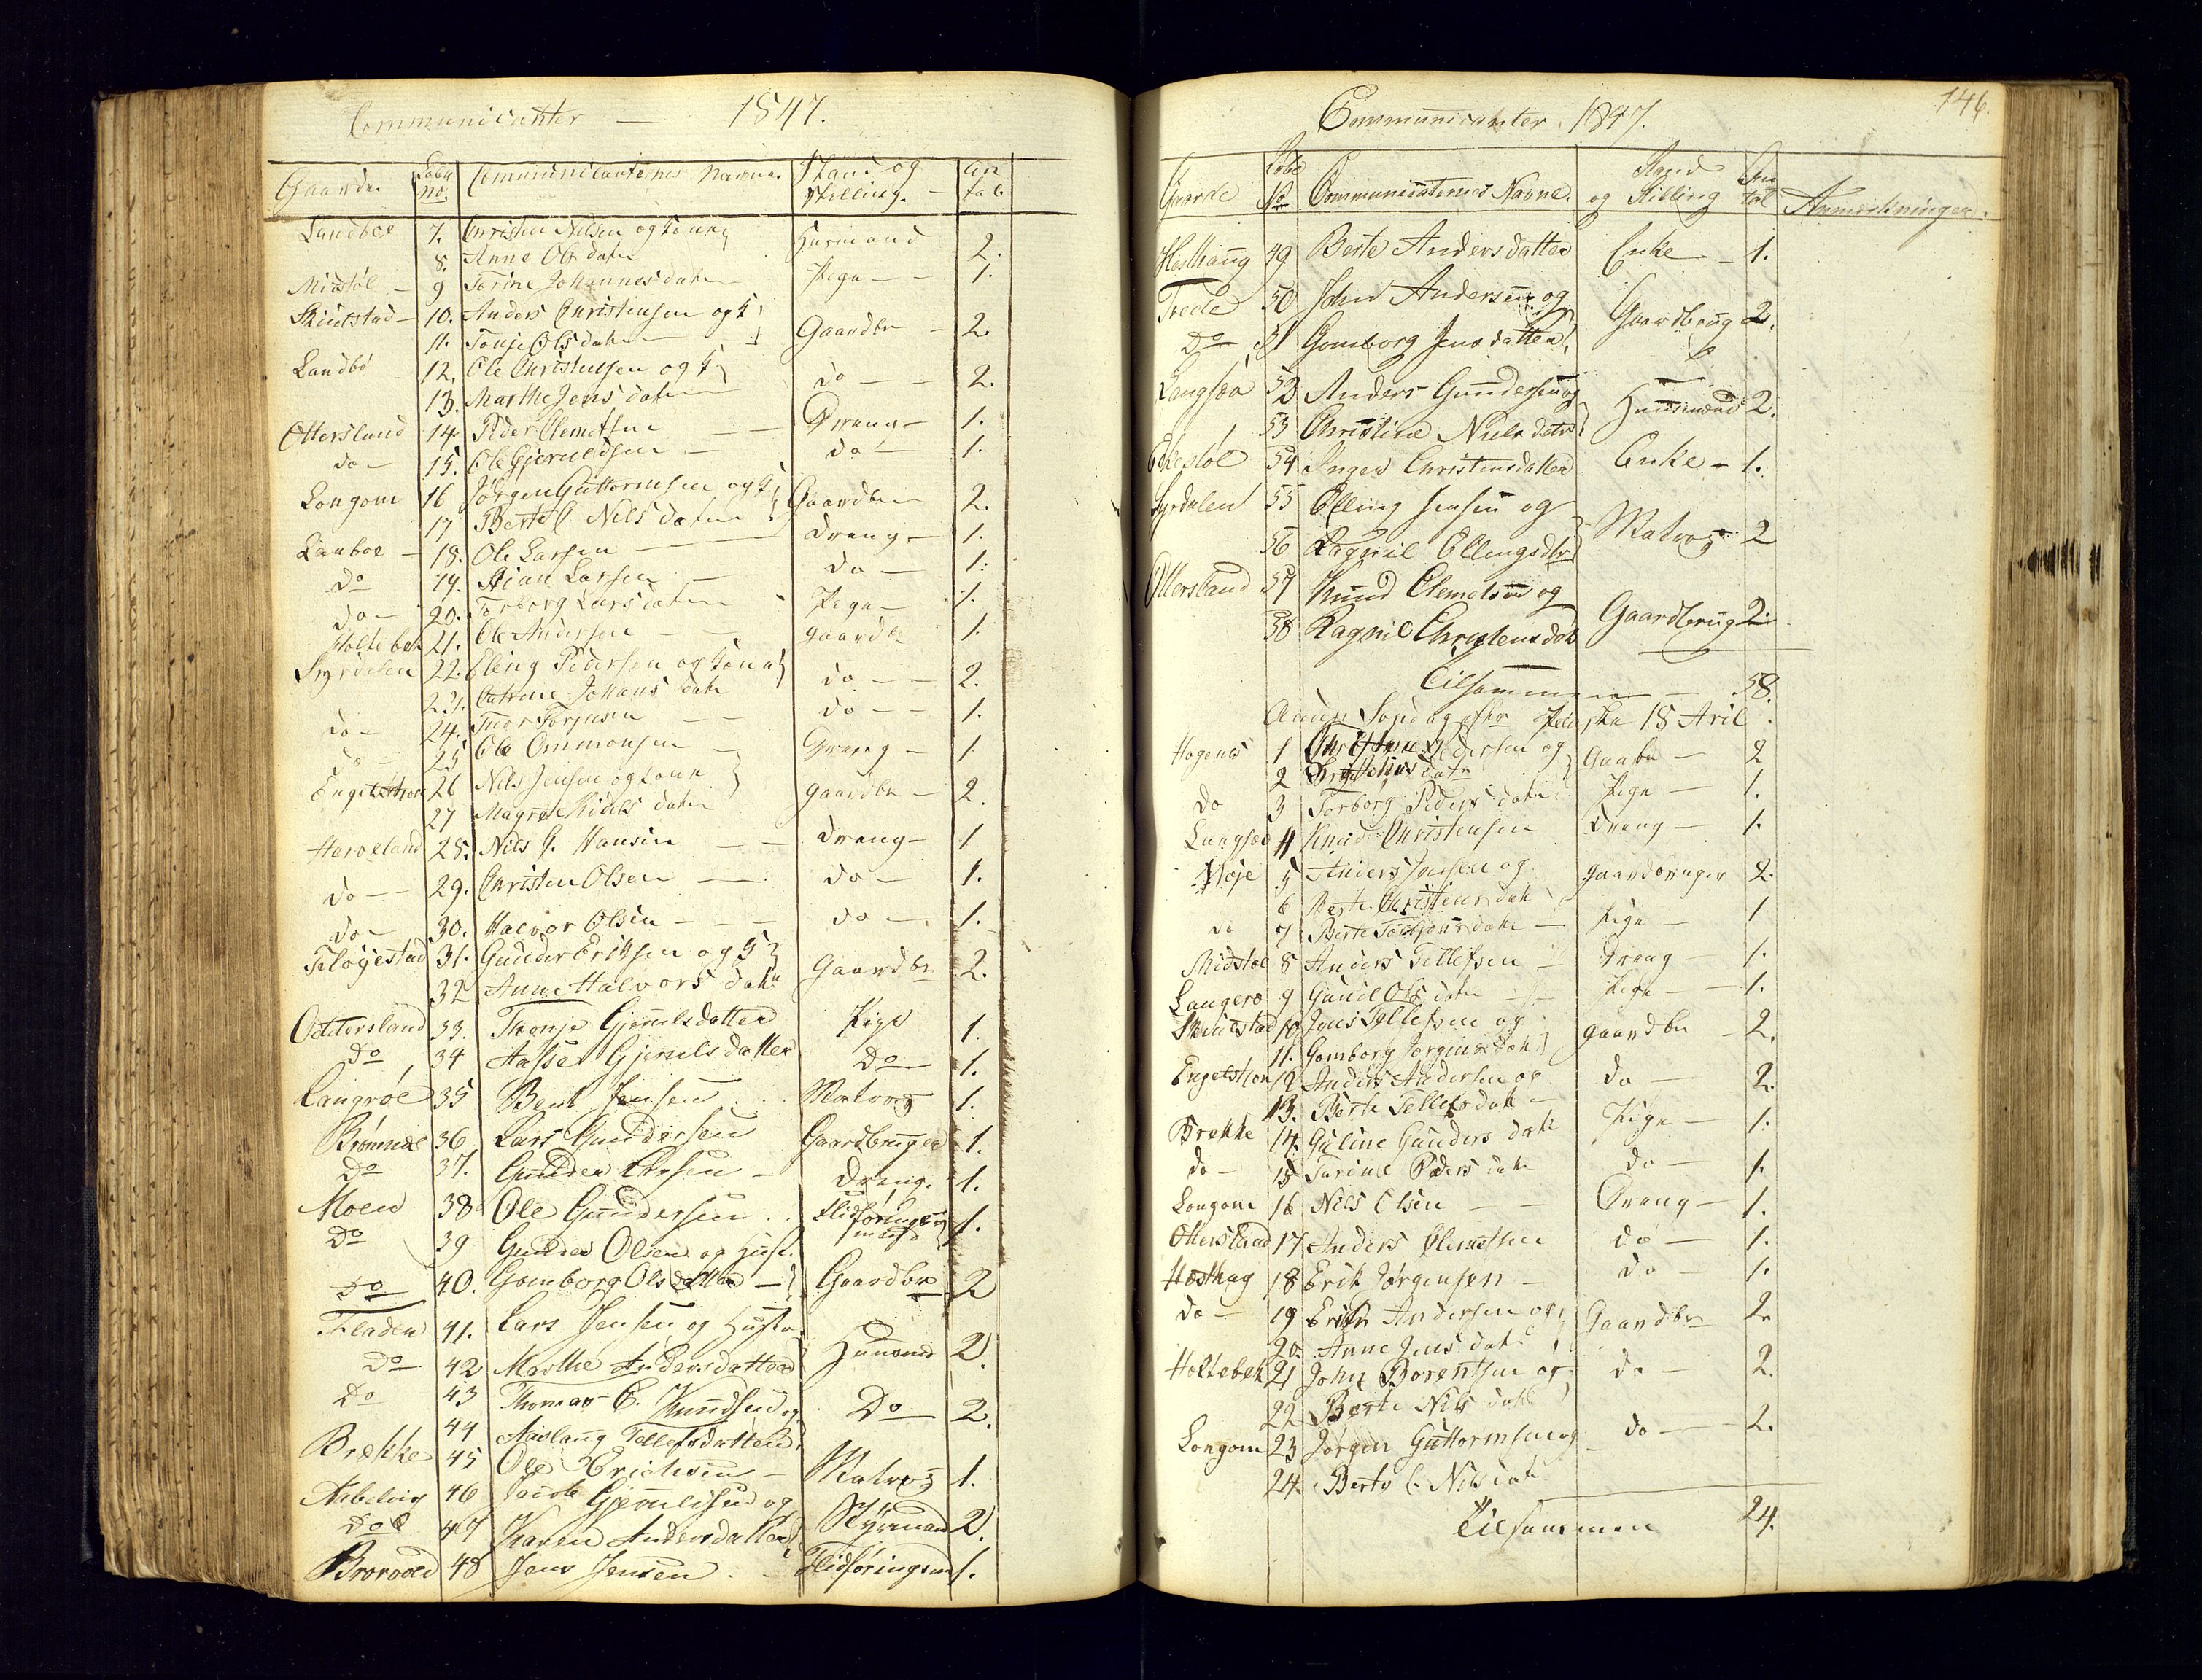 Communicanter — 1847.
Gaarde Løbe No. Communicanternes Navne. Stand og Stilling. Antal.
Landboe 7. Christen Nilsen og Kone Husmand 2.
8. Anne Ols datter
Midstøl 9 Torine Johannes datter Pige 1.
10. Anders Christensen og K Gaardbr 2.
11. Tonje Ols datter
Landbø 12. Ole Christensen og K do 2.
13. Marthe Jens datter
Ottersland 14 Peder Clemetsen Dreng 1.
do 15. Ole Gjeruldsen do 1.
Longom 16 Jørgen Guttormsen og K Gaardbr 2.
17 Berte C Nils datter
Lanboe 18. Ole Larsen Dreng 1.
Do 19. Larsen do 1.
do 20. Torborg Lars datter Pige 1.
Holtebek 21. Ole Andersen gaardbr 1.
Syrdalen 22. Eling Pedersen og Kone do 2.
23. Catrine Johans datr
do 24. Thor Torjusen do 1.
do 25 Ole Ommonsen Dreng 1
26 Nils Jensen og Kone gaardbr 2.
27 Niels datter
28. Nils J. Hansen dreng 1
do 29. Christen Olsen do 1.
do 30. Halvor Olsen do 1.
31. Gunder Eriksen og K Gaardbr 2.
32 Anne Halvors datr
Ottersland 33. Thonje Gjerulsdatter Pige 1.
Do 34 Aasse Gjerulsdatter Do 1.
Langrøe 35 Bent Jensen Matros 1.
36 Lars Gundersen Gaardbruger 1.
Do 37. Gunder Larsen Dreng. 1.
Moen 38 Ole Gundersen Flidføringsmand 1.
Do 39 Gunder Olsen og Hust.
Do 40. Gomborg Olsdatter Gaardbr 2
Fladen 41. Lars Jensen og Hustr Husmd 2.
Do 42 Marthe Andersdatter
Do 43 Thomas C. Knudsen og Do 2.
44 Aaslaug Tellefsdatter
Brekke 45 Ole Erichsen Matros 1.
46 Jacob Gjeruldsen og Styrmand 2.
Do 47 Karen Andersdatter
48 Jens Jensen Flidføringsm 1.
Communicanter 1847. 146.
Gaarde Løbe No Communicaternes Navne. Stand og Stilling Antal Anmærkninger.
Hesthaug 49 Berte Andersdatter Enke 1.
Trede 50 John Andersen og Gaardbrug 2.
Do 51 Gomborg Jensdatter
Langsæa 52 Anders Gundersen og Huusmand 2.
53 Christine Niels datr
54 Inger Christensdatter Enke 1.
Syrdalen 55 Elling Jensen og Matros 2
56 Ragnil Ellingsdtr
Ottersland 57 Knud Clemetsen og Gaardbrug 2.
58 Ragnil Christensdatr
Tilsammen 58.
Anden Søndag efter Paaske 18 April.
1 Pedersen og Gaabr 2
2
do 3 Torborg Peders datr Pige 1.
Langsæe 4 Knud Christensen Dreng 1.
5 Anders Jensen og gaardbruger 2.
6 Berte Christens datr
do 7 Berte datr Pige 1
Midstøl 8 Anders Tellefsen Dreng 1.
Langerø 9 Gunil Ols datr Pige 1.
10. Jens Tellefsen og gaardbr 2.
11. Gomborg Jørgens datr
12 Anders Andersen og do 2.
13. Berte Tellefs datr
Brekke 14. Guline Gunders datr Pige 1.
do 15 Torine Peders datr do 1.
Longom 16 Nils Olsen Dreng 1.
Ottersland 17 Anders Clemetsen do 1.
Hæsthag 18 Erik Jørgensen do 1.
do 19 Erik Andersen og Gaardbr 2.
20. Anne Jens datr
Holtebek 21 John Borentsen og do 2.
22 Berte Nils datr
Longom 23 Jørgen Guttormsen og do 2.
24. Berte C. Nils datr
Tilsammen 24.